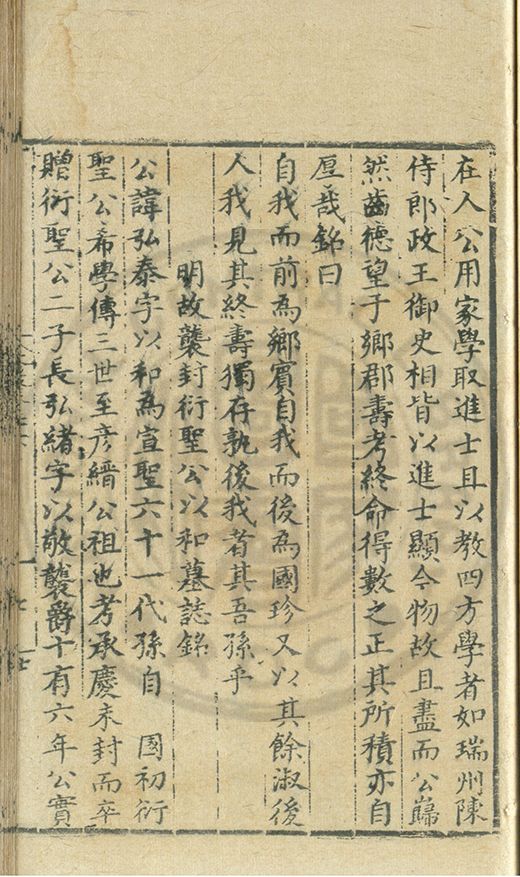 在人公用家學取進士且以教四方學者如瑞州陳
侍郎政王御史相皆以進士顯今物故且盡而公巋
然齒德望于鄉郡壽考終命得數之正其所積亦自
厚哉銘曰
自我而前為鄉賓自我而後為國珍又以其餘淑後
人我見其終壽獨存孰後我者其吾孫乎
明故襲封衍聖公以和墓誌銘
公諱弘泰字以和為宣聖六十一代孫自 國初衍
聖公希學傳三世至彥縉公祖也考承慶未封而卒
贈衍聖公二子長弘緒字以敬襲爵十有六年公實